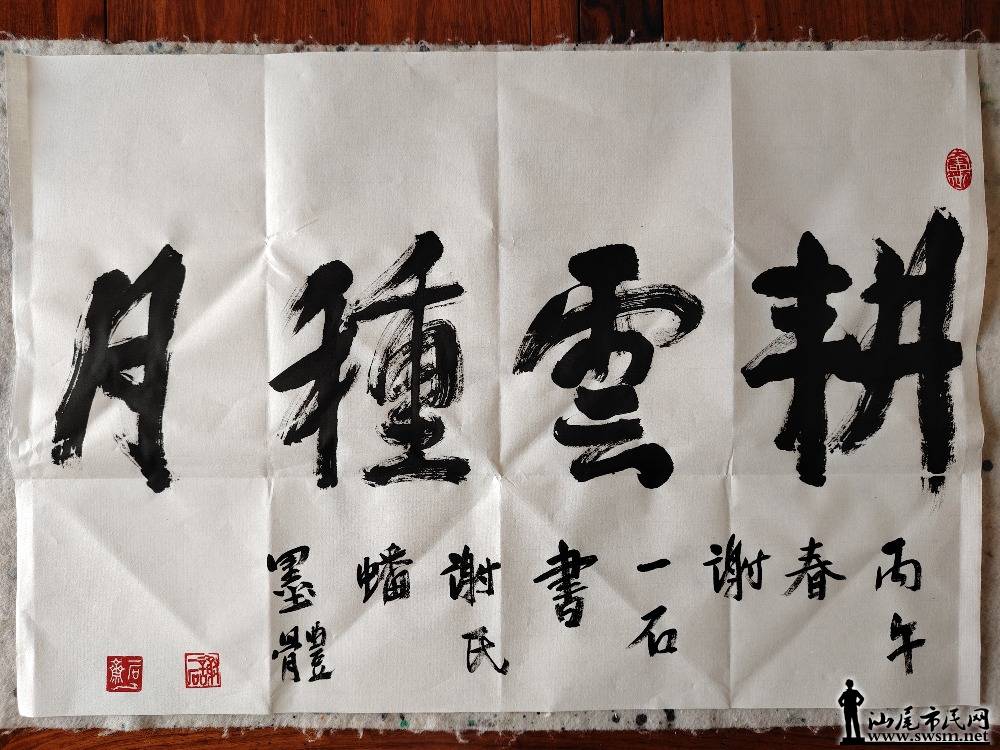 耕雲種月
丙午
春
謝
一石
書
謝氏
蟠
墨體
汕尾市民网
www.swsm.net